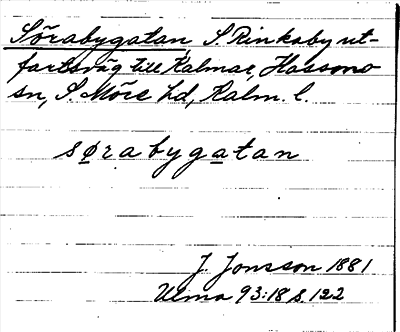 Sörabygatan, S. Rinkaby ut-
fartsväg till Kalmar, Hassmo
sn, S. Möre hd, Kalm. l.
sørabygatan
J. Jonsson 1881
Ulma 93:18 s. 122